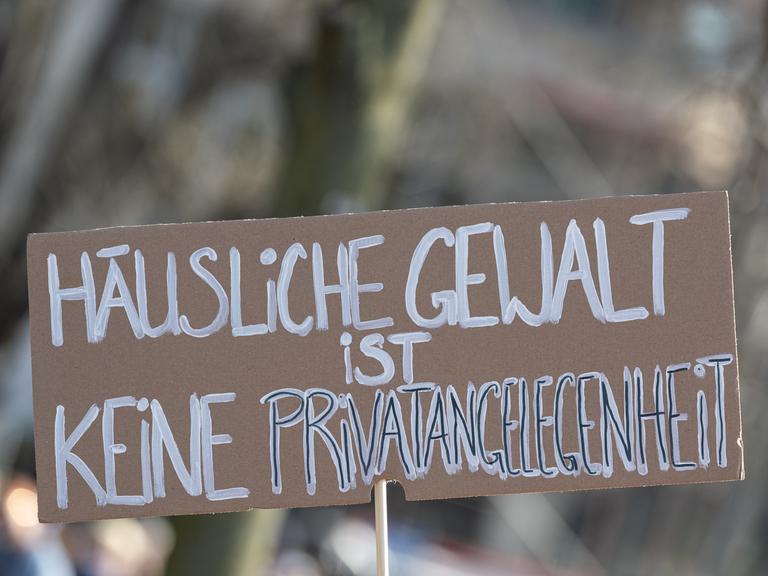 HÄUSLiCHE GEWALT
iST
KEiNE PRiVATANGELEGENHEiT